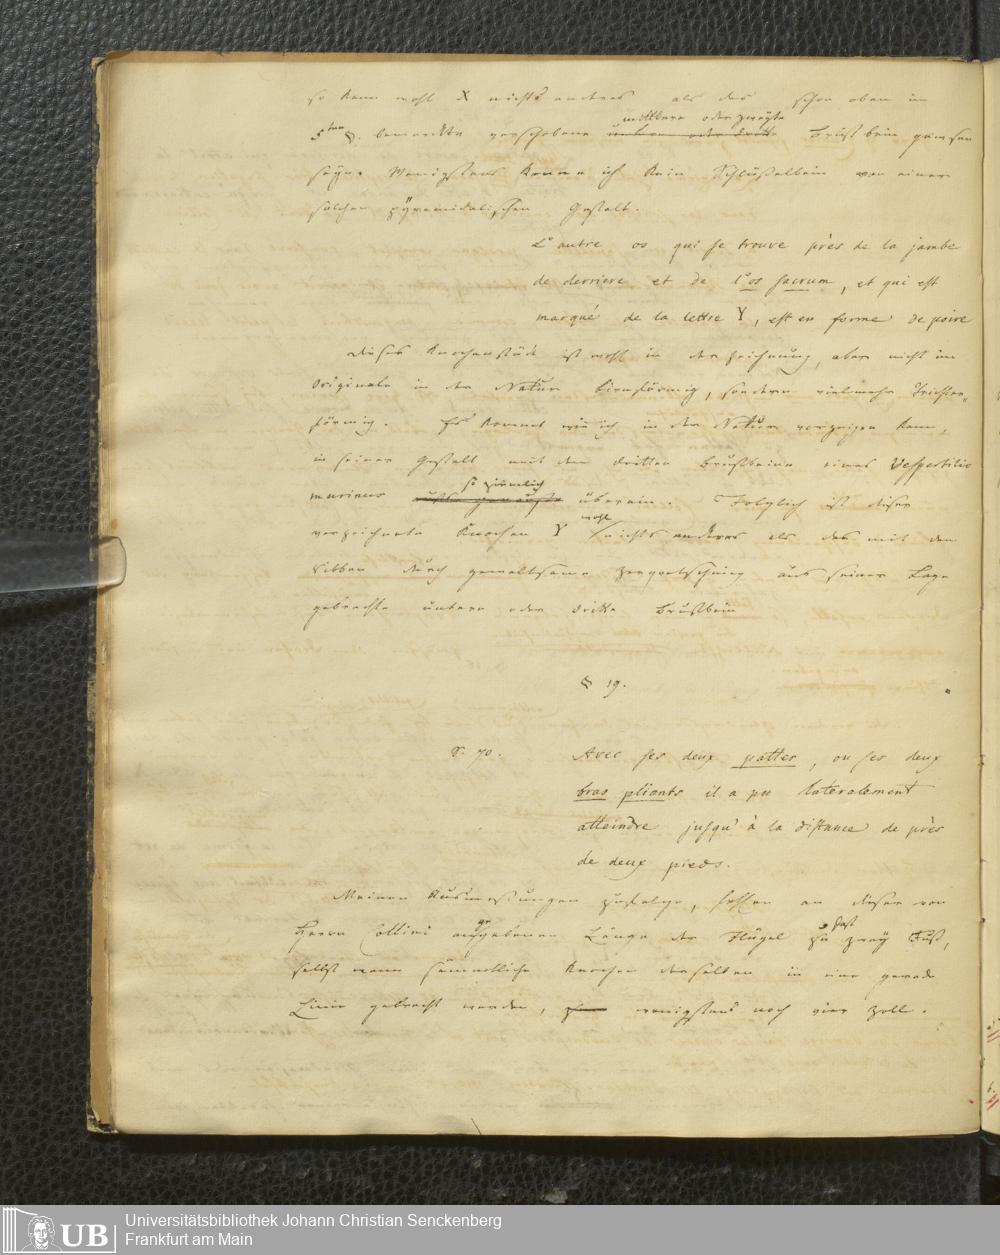 so kann wohl X nichts anders als das schon oben im
mittlere oder zweyte
5ten §. bemerkte verschobene untere oder dritte Brustbein gewesen
seyn. Wenigstens kenne ich kein Schlüßelbein von einer
solchen pÿramidalischen Gestalt.
L'autre os qui se trouve près de la jambe
de derriere et de l'os sacrum, et qui est
marqué de la lettre Y, est en forme de poire
Dieses Knochenstück ist wohl in der Zeichnung, aber nicht im
Originale in der Natur birnförmig, sondern vielmehr Trichter„
förmig. Es kommt wie ich in der Natur vorzeigen kann,
in seiner Gestalt mit dem dritten Brustbeine eines Vespertilio
so ziemlich
murinus überein. Folglich ist dieser
wohl
verzeichnete Knochen Y nichts anderes als das mit den
Ribben durch gewaltsame Zerquetschung aus seiner Lage
gebrachte untere oder dritte Brustbein
§ 19.
S. 70. Avec ses deux pattes, ou ses deux
bras pliants il a pu lateralement
atteindre jusqu'à la distance de près
de deux pieds.
Meinen Ausmessungen zufolge, fehlen an dieser von
ge fast
Herrn Collini angegebenen Länge der Flügel zu zwey Fuß,
selbst wenn sämmtliche Knochen derselben in eine gerade
Linie gebracht werden, wenigstens noch vier Zoll.
UB
Universitätsbibliothek Johann Christian Senckenberg
Frankfurt am Main